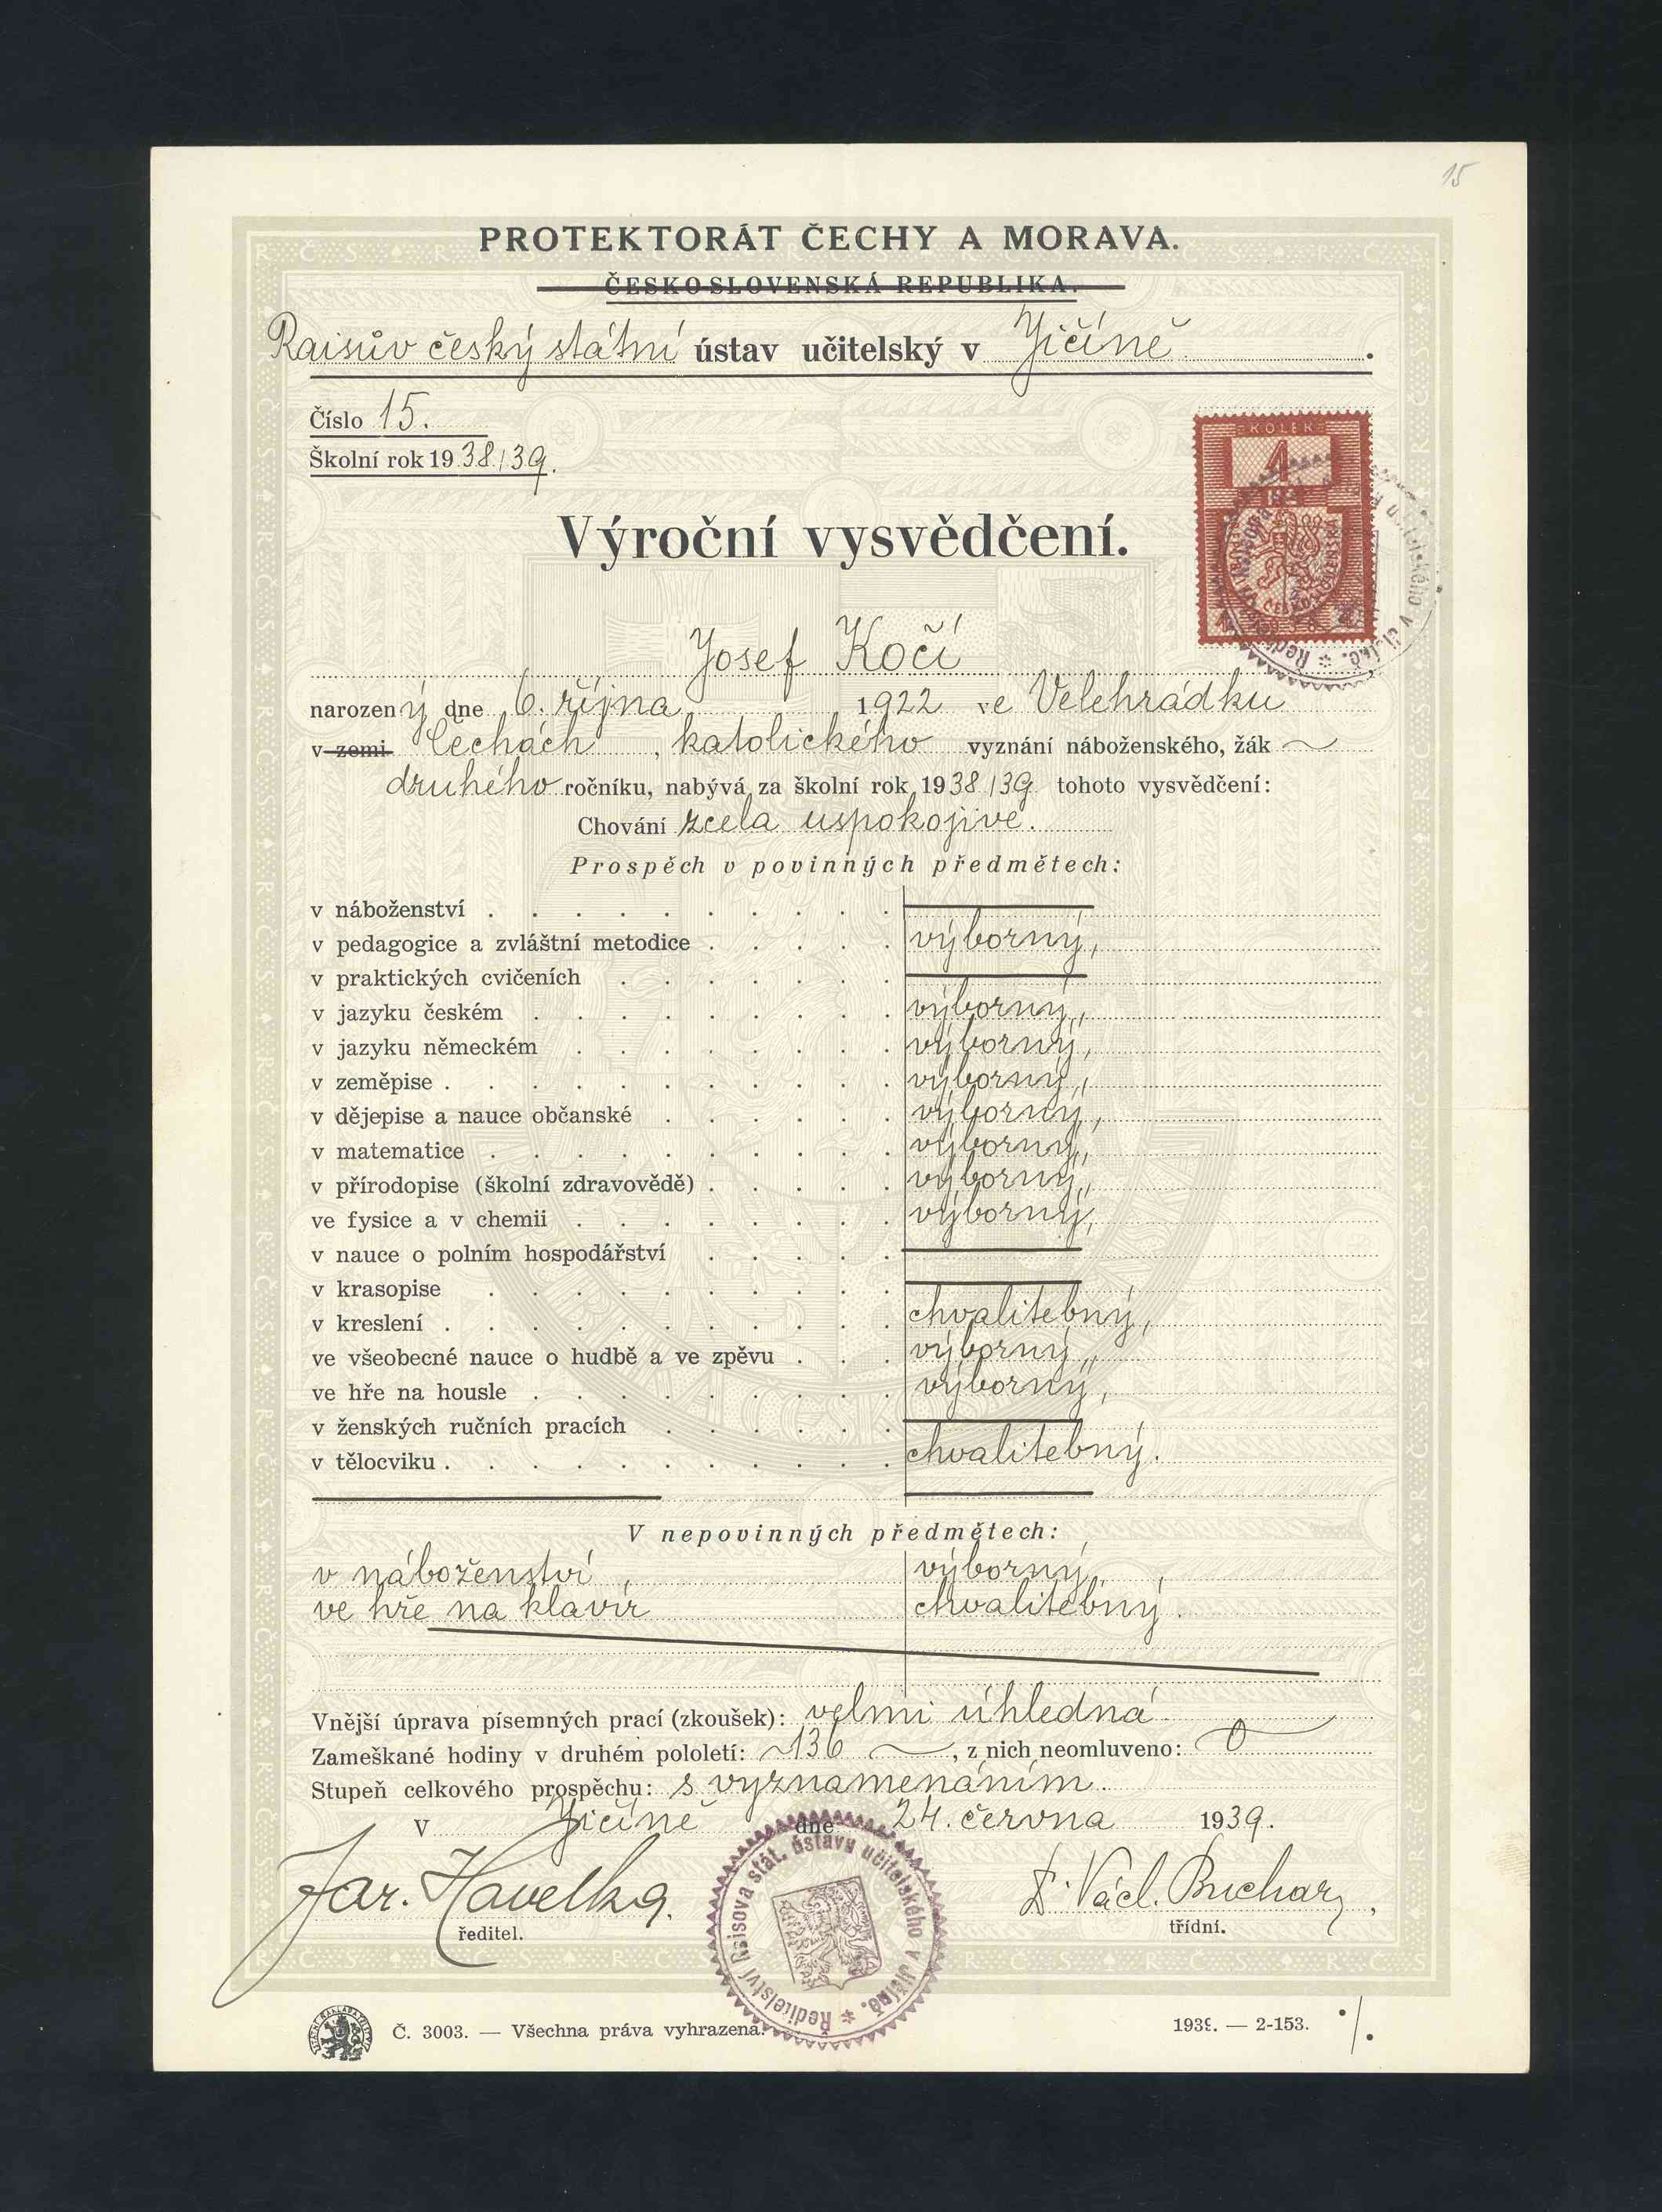 15
PROTEKTORÁT ČECHY A MORAVA.
ČESKOSLOVENSKÁ REPUBLIKA.
Raisův český státní ústav učitelský v Jičíně.
Číslo 15.
Školní rok 1938/39.
KOLEK
4
ČESKOSLOVENSKÁ
Výroční vysvědčení.
Josef Kočí
narozený dne 6. října 1922 ve Velehrádku
v zemi Čechách, katolického vyznání náboženského, žák
druhého ročníku, nabývá za školní rok 1938/39 tohoto vysvědčení:
Chování zcela uspokojivé.
Prospěch v povinných předmětech:
v náboženství
v pedagogice a zvláštní metodice výborný,
v praktických cvičeních
v jazyku českém výborný,
v jazyku německém výborný,
v zeměpise výborný,
v dějepise a nauce občanské výborný,
v matematice výborný,
v přírodopise (školní zdravovědě) výborný,
ve fysice a v chemii výborný,
v nauce o polním hospodářství
v krasopise
v kreslení chvalitebný,
ve všeobecné nauce o hudbě a ve zpěvu výborný,
ve hře na housle výborný,
v ženských ručních pracích
v tělocviku chvalitebný.
V nepovinných předmětech:
v náboženství, výborný,
ve hře na klavír chvalitebný.
Vnější úprava písemných prací (zkoušek): velmi úhledná
Zameškané hodiny v druhém pololetí: 136, z nich neomluveno: 0
Stupeň celkového prospěchu: s vyznamenáním.
V Jičíně dne 24. června 1939.
Jar. Havelka. Dr. Václ. Buchar,
ředitel. třídní.
Ředitelství Raisova stát. ústavu učitelského v Jičíně.
Č. 3003. — Všechna práva vyhrazena. 1939. — 2-153.